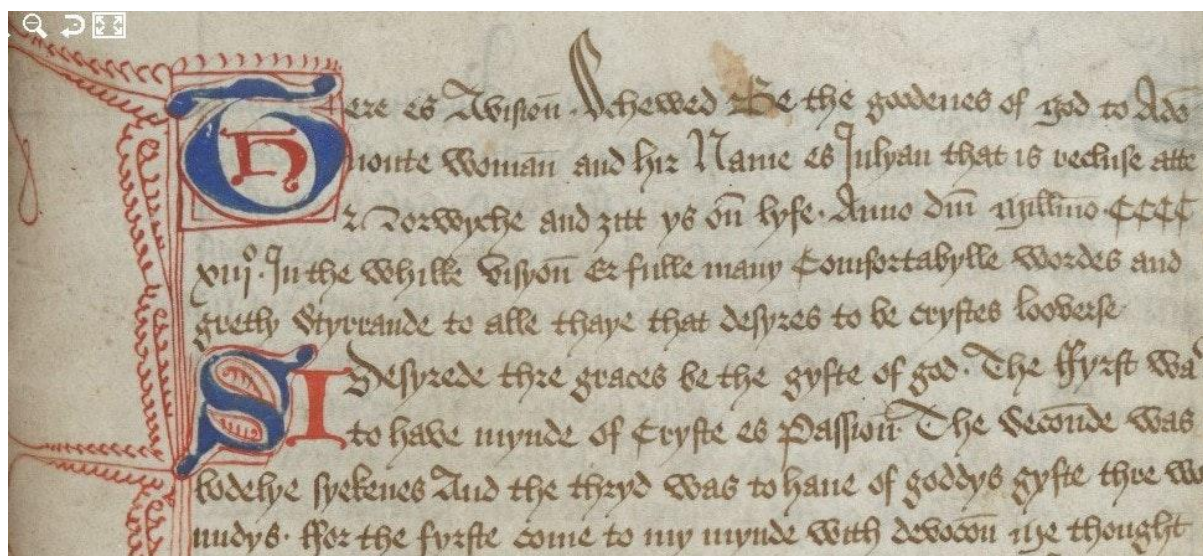 Here es Avisioun Schewed Be the goodenes of god to Ade
uoute Womann and hir Name es Julyan that is recluse atte
Norwyche and ȝitt ys oun lyfe. Anno dm̄ millmo CCCC
xiijº. In the whilke visyoun Er fulle many Comfortabylle wordes and
gretly Styrrande to alle thaye that desyres to be crystes looverse
I desyrede thre graces be the gyfte of god. The ffyrst wa
to have mynde of Cryste es Passioun The Secounde was
bodelye syekenes And the thryd was to haue of goddys gyfte thre wo
undys. ffor the fyrste come to my mynde with devocoun me thought